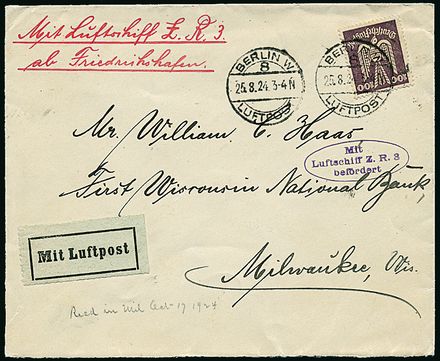 Mit Luftschiff Z. R. 3.
ab Friedrichshafen.
BERLIN W
8
25.8.24 3-4N
LUFTPOST
BERLIN W
25.8.2
LUFTPOST
Mr. William C. Haas,
Mit
Luftschiff Z. R. 3
befördert
First Wisconsin National Bank,
Mit Luftpost
Milwaukee, Wis.
Recd in Mil Oct-17 1924